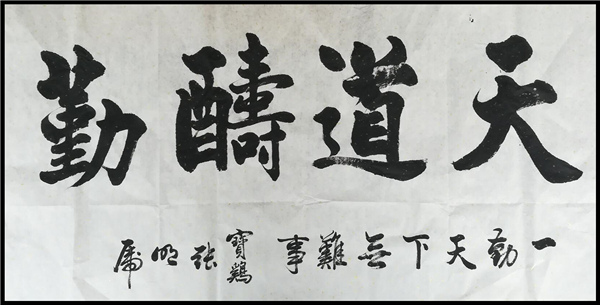 天道醻勤
一勤天下無難事 寶鷄 张明虎